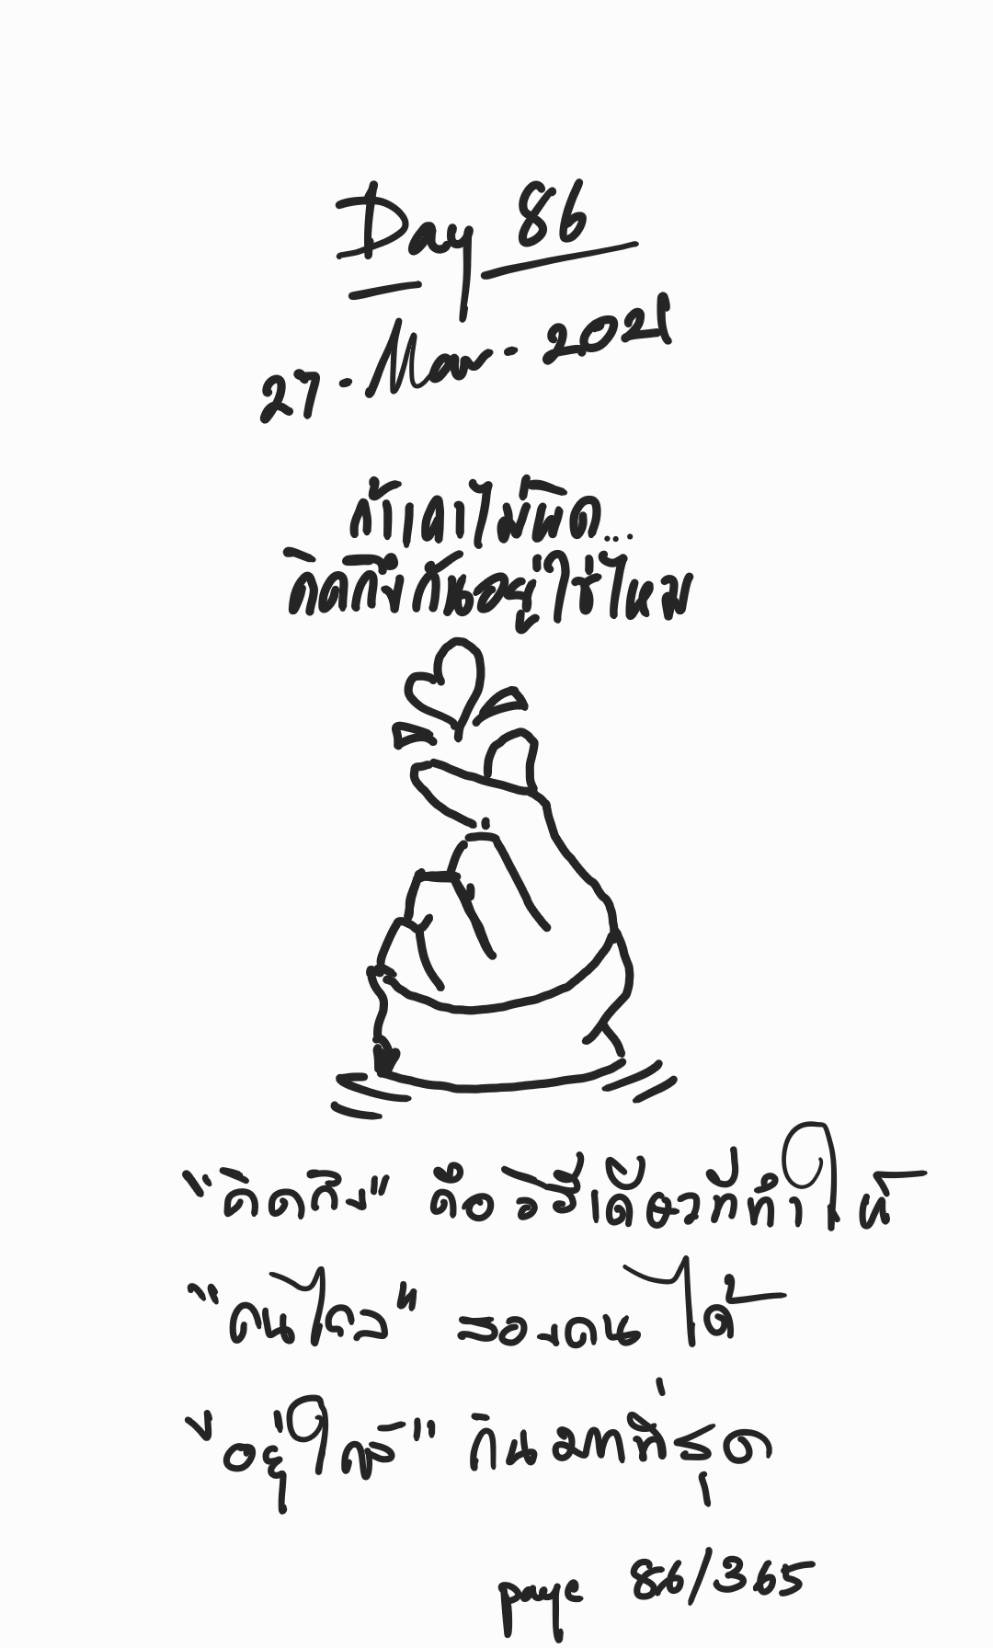 Day 86
27-Mar-2021
ถ้าเดาไม่ผิด...
คิดถึงกันอยู่ใช่ไหม
"คิดถึง" คือวิธีเดียวที่ทำให้
"คนไกล" สองคน ได้
"อยู่ใกล้" กันมากที่สุด
page 86/365